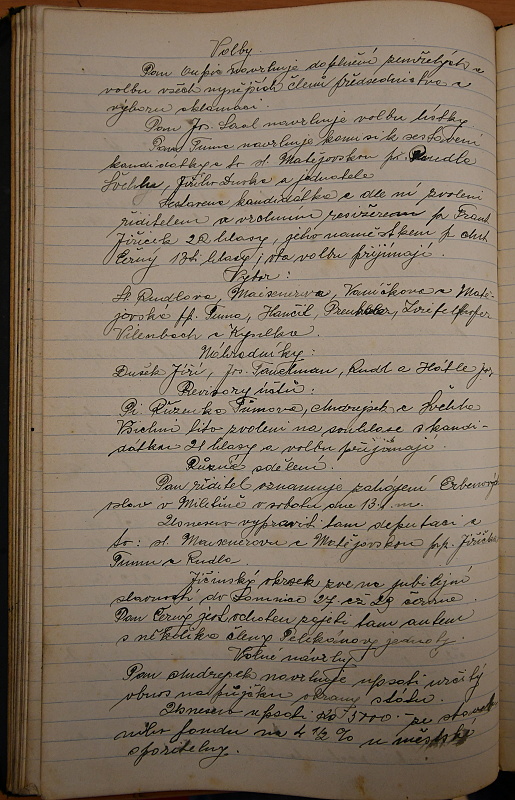 Volby.
Pan Čupic navrhuje doplnění zemřelých a
volbu všech nynějších členů předsednictva a
výboru aklamací.
Pan Jos. Saal navrhuje volbu lístky
Pan Tuma navrhuje komisi k sestavení
kandidátky a to sl. Matějovskou pí. Rudla
Švehla, Jiřího Duška a jednatele
Sestavena kandidátka a dle ní zvoleni
ředitelem a vrchním režisérem p. Frant
Jiříček 20 hlasy, jeho náměstkem p. Ant.
Černý 13ti hlasy jež volbu přijímají.
Výbor:
Sl. Rudlova, Maixnerova, Vaníčkova a Matě-
jovská pp. Tuma, Hančil, Josef
Vilenbach a Kyselka
Náhradníky:
Dušek Jiří, Jos. Taucman, Rudl a Hátle Jos.
Revisory účtů:
Pí. Růženka Tůmová, Andrejsek a Švehla
Všichni tito zvoleni na souhlase s kandi-
dátkou 21 hlasy a volbu přijímají.
Různá sdělení.
Pan ředitel oznamuje zahájení Erbenových
slav v Miletíně v sobotu dne 13. t. m.
Usneseno vypraviti tam deputaci a
to: sl. Maixnerovu a Matějovskou pp. Jiříčka
Tumu a Rudla.
Jičínský okrsek zve na jubilejní
slavnosti do Lomnice 27 až 29 června.
Pan Černý jest ochoten zajeti tam autem
s několika členy Pelikánovy jednoty.
Volné návrhy
Pan Andrejsek navrhuje upsati určitý
obnos na půjčku obrany státu.
Usneseno upsati Kč 5000.- ze staveb-
ního fondu na 4 1/2 % u městské
spořitelny.